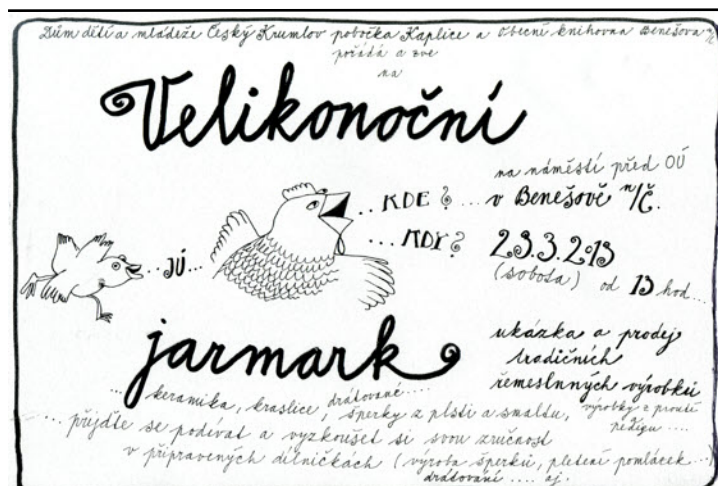 Dům dětí a mládeže Český Krumlov pobočka Kaplice a Obecní knihovna Benešova n/Č
pořádá a zve
na
Velikonoční
na náměstí před OÚ
..KDE? ... v Benešově n/Č.
...KDY? 23.3.2013
(sobota) od 13 hod...
..JÚ...
jarmark
ukázka a prodej
tradičních
řemeslnných výrobků
... keramika, kraslice, drátované....
šperky z plsti a smaltu, výrobky z proutí
pedigu ....
... přijďte se podívat a vyzkoušet si svou zručnost
v připravených dílničkách (výroba šperků, pletení pomlázek...)
drátování .... aj.